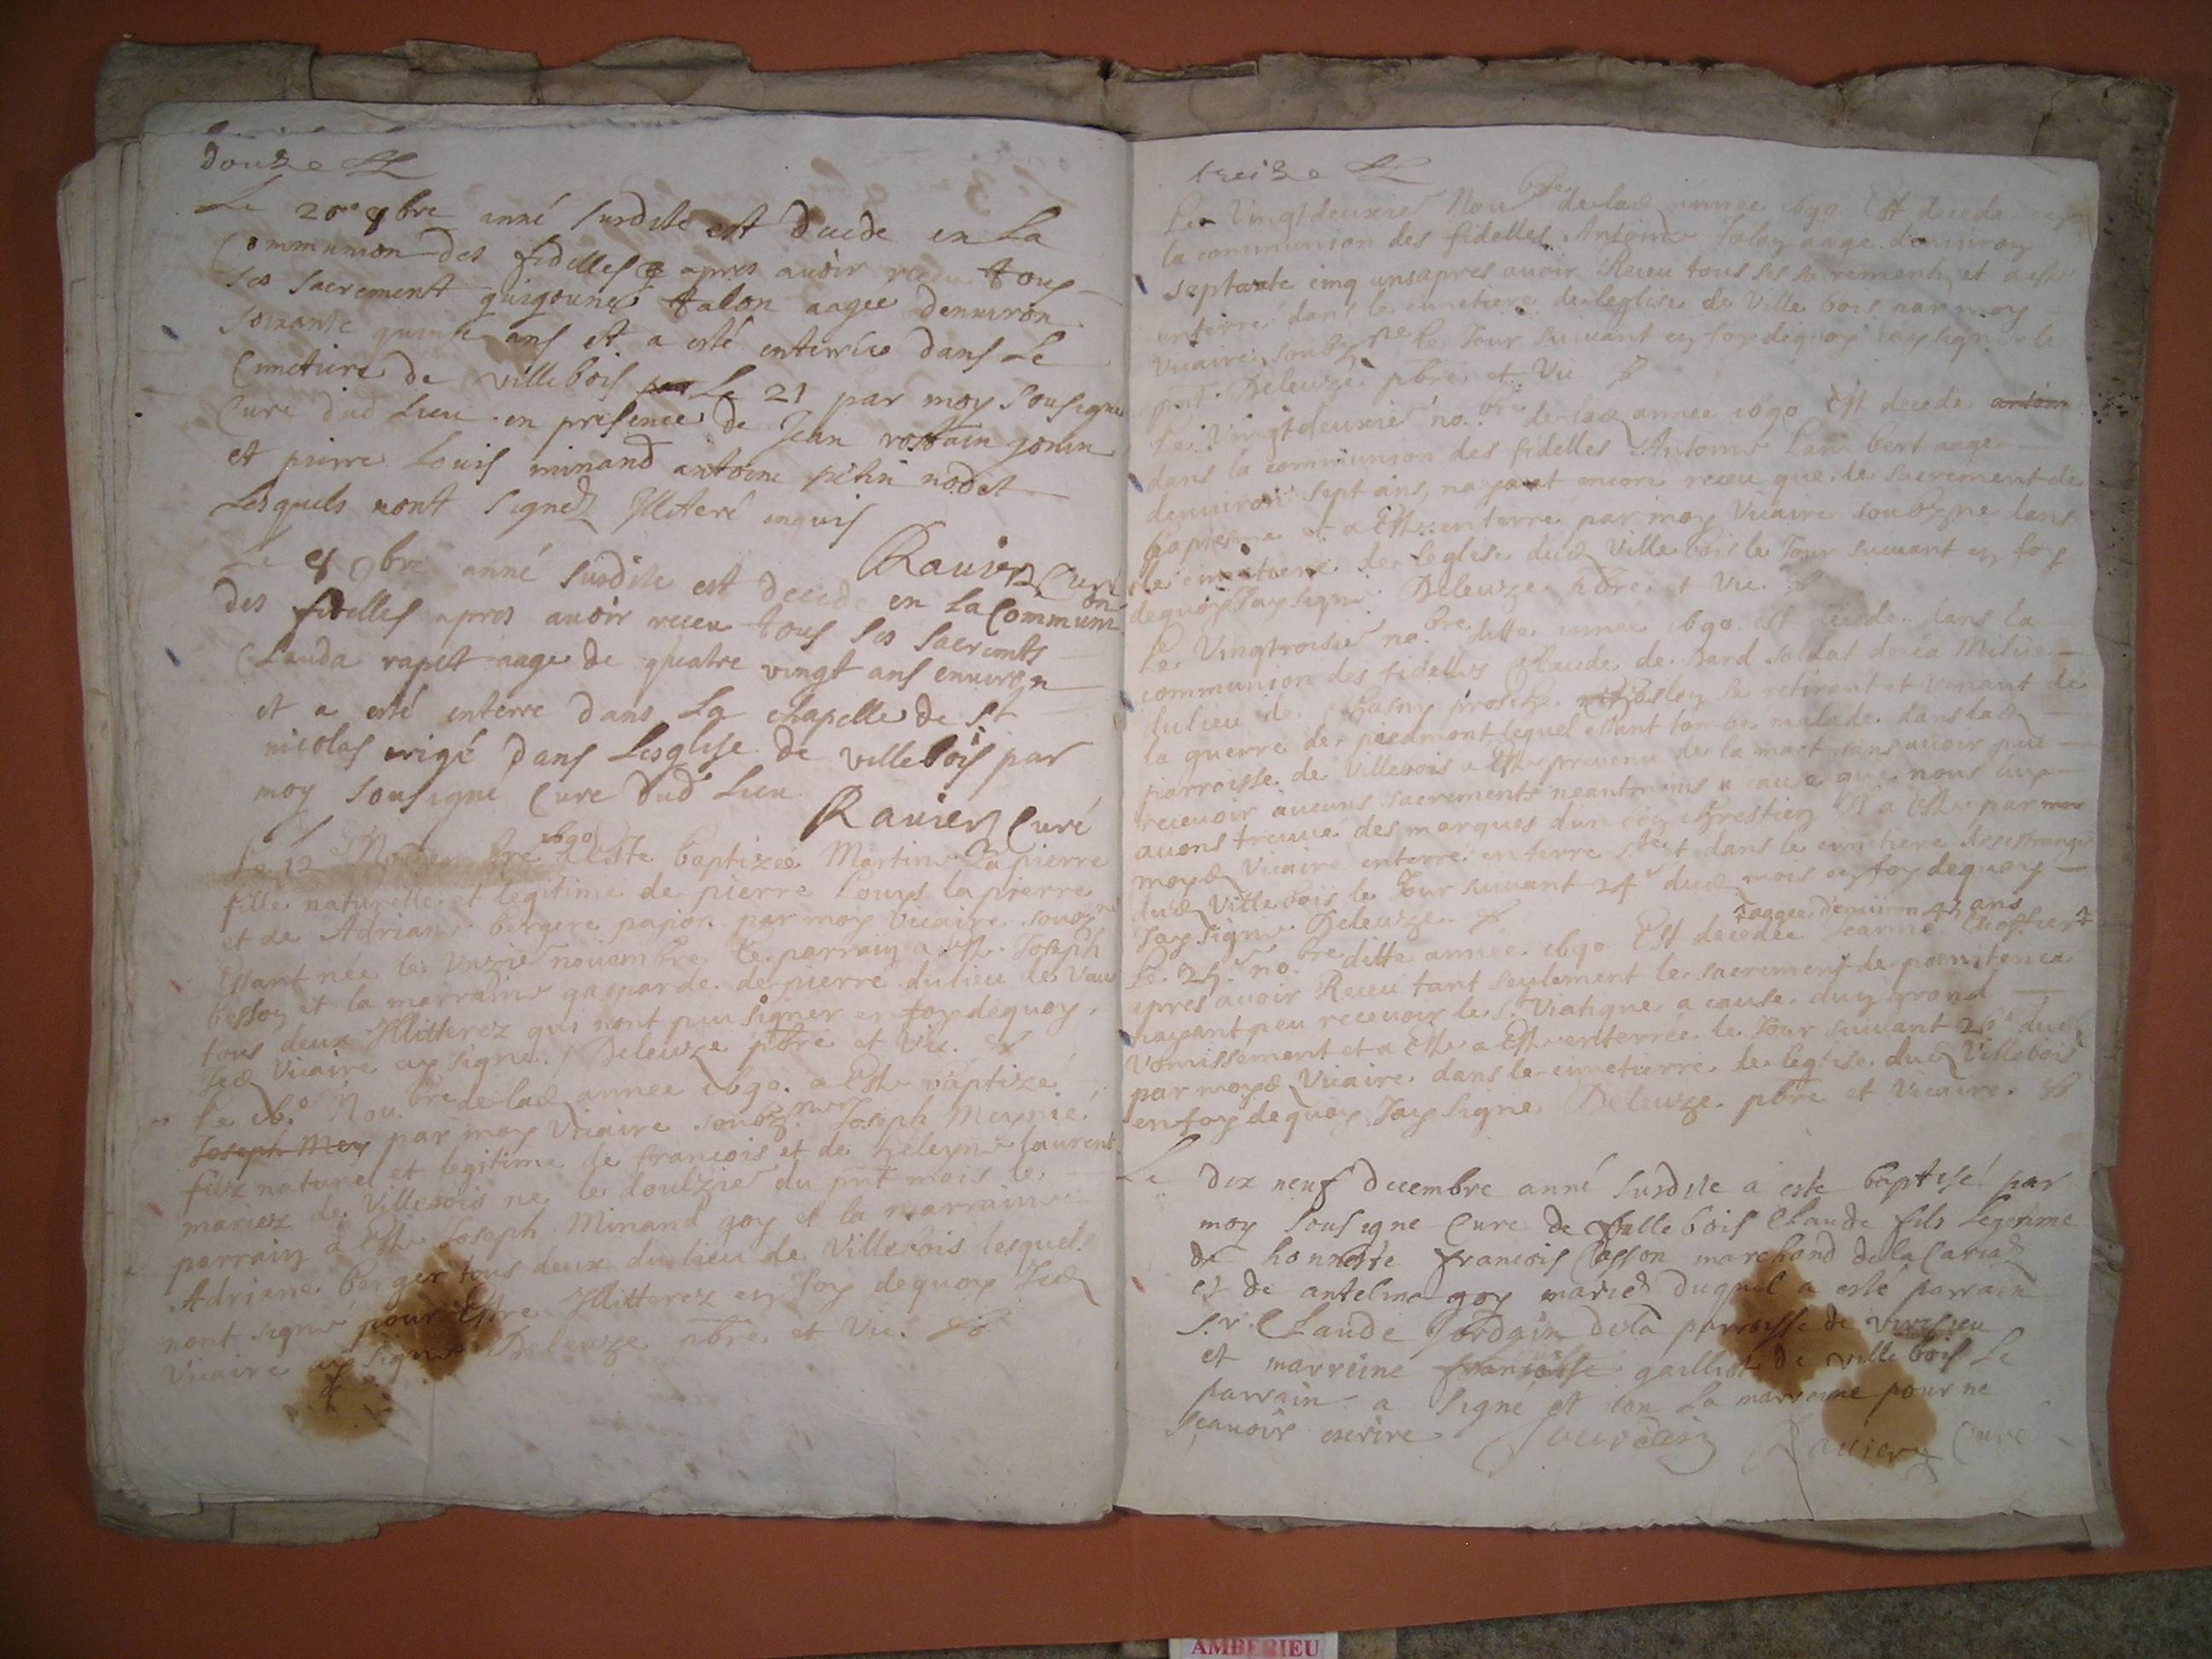 douze
Le 20e 8bre anné susdite est decede en La
Communion des fidelles apres avoir receu tous
ses sacrement guigoune talon aagee denuiron
soixante quinse ans et a esté enterrée dans Le
Cimetiere de villebois Le 21 par moy sousigne
Cure dud Lieu en presence de Jean rostain jonin
et pierre Louis minand antoine pitin nodet
Lesquels nont signez Illiteré enquis
Ravier Curé
Le 8 9bre anné susdite est decede en La Communion
des fidelles apres avoir receu tous ses sacremts
Clauda rapet aage de quatre vingt ans enuiron
et a esté enterre dans La chapelle de St
nicolas erigé dans Lesglise de villebois par
moy sousigné Cure dud Lieu
Ravier Curé
Le 12 Novembre 1690 a Este baptizée Martine Lapierre
fille naturelle et legitime de pierre Louys lapierre
et de Adriane bergere papon par moy Vicaire soubzne
Estant née le Unzie novembre Le parrain a este Joseph
besson et la marraine gasparde de pierre du lieu de Vaux
tous deux Illitterez qui nont peu signer en foy dequoy
Jed Vicaire ay signe Deleuze pbre et Vic.
Le 16e Nou.bre de lad annee 1690. a Este baptizé
Joseph Mey par moy Vicaire soubzner Joseph Meynié
filz naturel et legitime de francois et de heleyne laurent
mariez de Villebois ne le doulzie du pnt mois le
parrain a Este Joseph Minand goy et la marraine
Adriane berger tous deux du lieu de Villebois lesquels
nont signe pour Estre Illitterez en foy dequoy Jed
Vicaire ay signe Deleuze pbre et Vic.
treize
Le Vingtdeuxie Nou.bre de lad annee 1690 Est decede en
la communion des fidelles Antoine Taloy aage denuiron
septante cinq ans apres auoir Receu tous ses sacrements et a este
enterré dans le cimetiere de leglise de Ville bois par moy
Vicaire soubzne le Jour suivant en foy dequoy jay signe le
pnt. Deleuze pbre et Vic
Le Vingtdeuxie no.bre de lad annee 1690 Est decede antoin
dans la communion des fidelles Antoine Lambert aage
denuiron sept ans, nayant encore receu que le sacrement de
baptesme et a Este enterre par moy Vicaire soubzne dans
le cimetiere de leglise dud Ville bois le Jour suivant en foy
dequoy Jay signe Deleuze pbre et Vic.
Le Vingtroisie no.bre ditte année 1690 est decede dans la
communion des fidelles Claude de bard soldat de la Milice
du lieu de se retirant et venant de
la guerre de piedmont lequel estant tombe malade dans lad
parroisse de Villebois a Este prevenu de la mort sans auoir peu
receuoir aucuns sacrements neantmoins a cause que nous luy
auons treuué des marques dun bon Chrestien Il a Este par
moyd Vicaire enterré en terre ste dans le cimetiere des estrangers
dud Ville bois le Jour suivant 24e dud mois en foy dequoy
Jay signe Deleuze.
Le 25e no.bre ditte annee 1690 Est decedee Jeanne aagee denuiron 45 ans
apres auoir Receu tant seulement le sacrement de poenitence
nayant peu receuoir le St Viatique a cause dun grand
Vomissement et a Este a Este enterrée le Jour suivant 26e dud
par moyd Vicaire dans le cimetierre de leglise dud Villebois
en foy dequoy Jay signe Deleuze pbre et Vicaire.
Le dix neuf decembre anné susdite a este baptisé par
moy sousigne Cure de Villebois Claude fils legitime
de honneste francois Casson marchand de la
et de antelme goy mariés duquel a esté parrain
S.r Claude Jordain de la parroisse de virisieu
et marreine francoise gaillist de villebois Le
parrain a signé et non La marreine pour ne
scauoir escrire Jourdain Ravier Curé
AMBERIEU